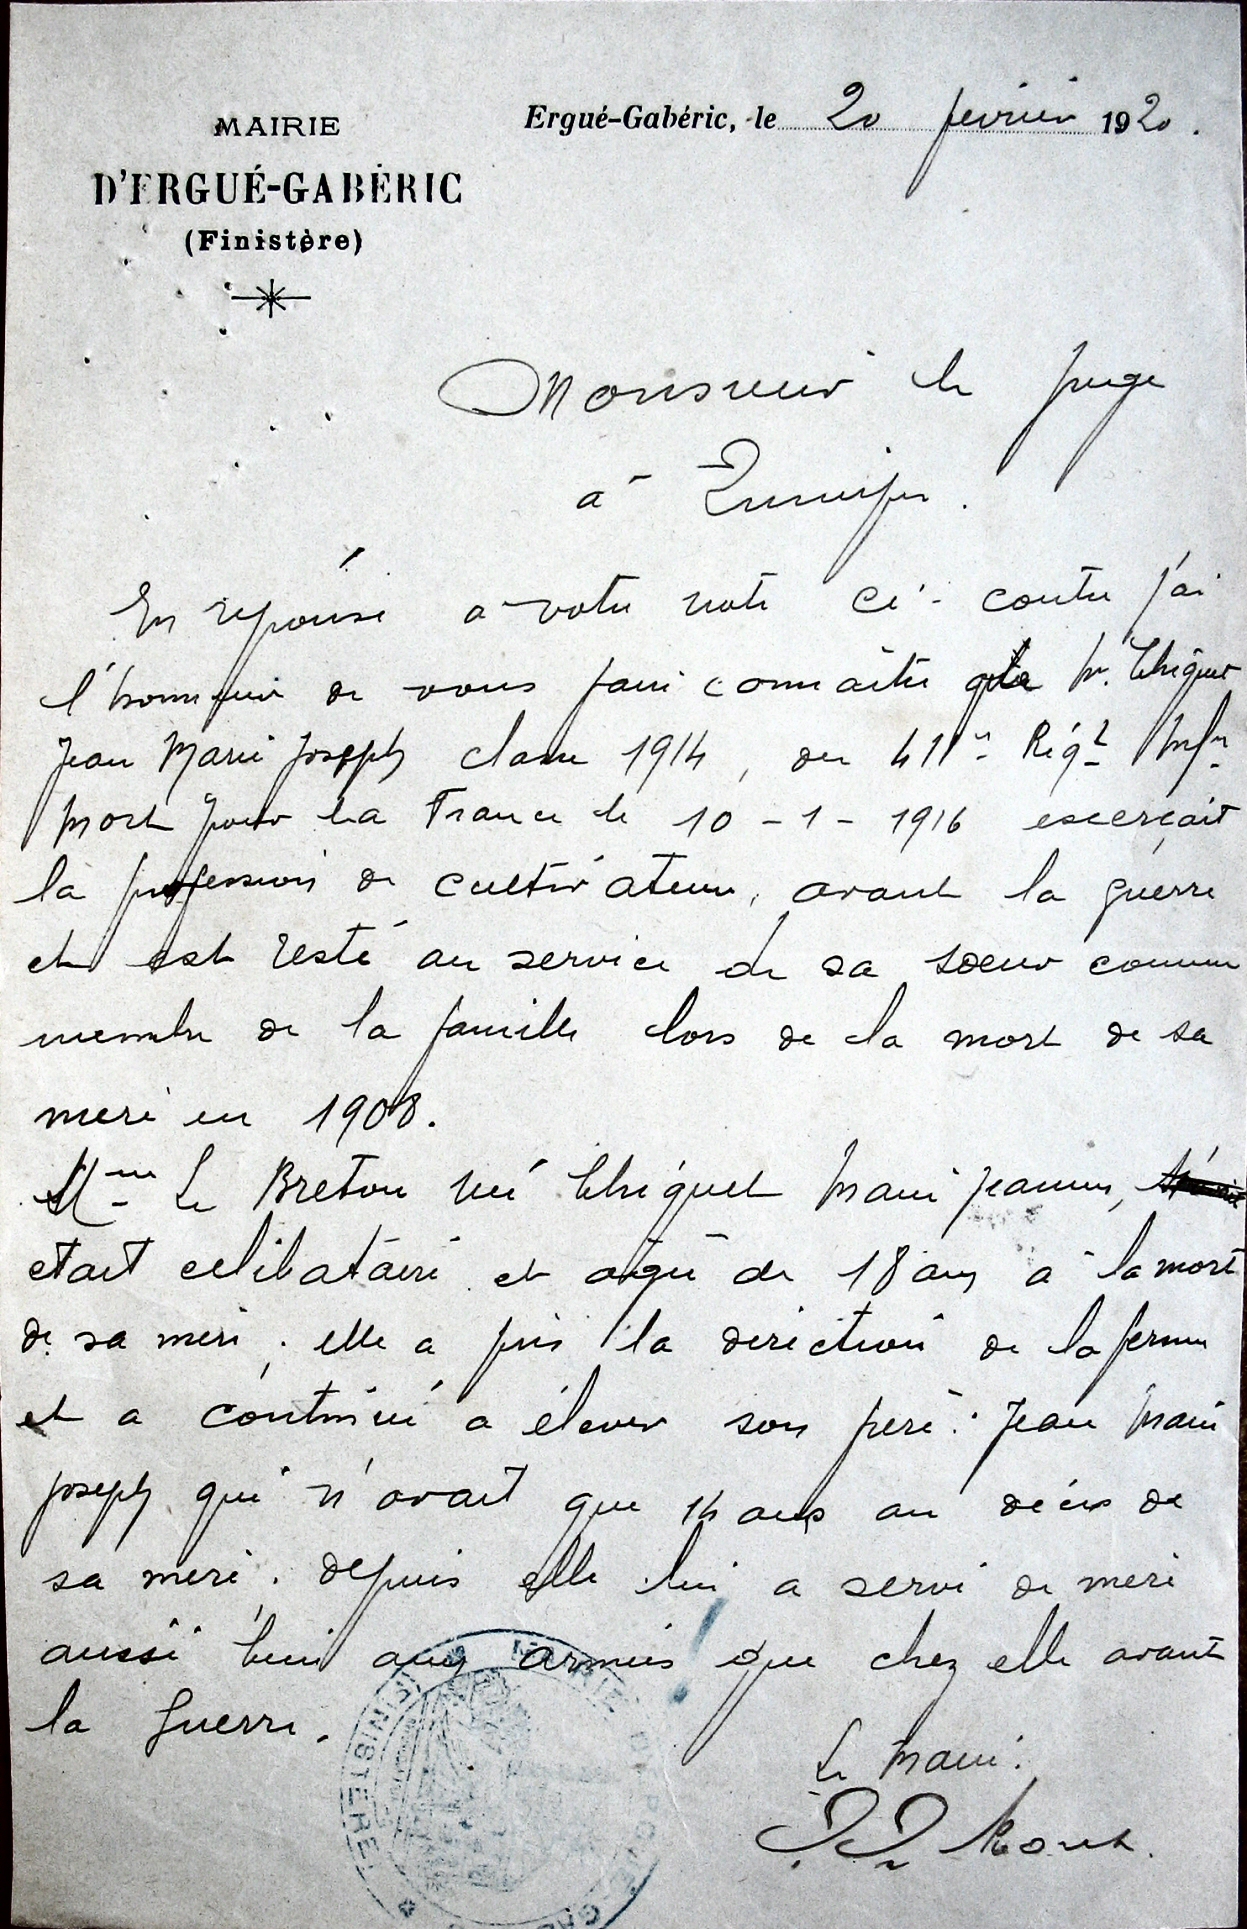 MAIRIE
D'ERGUÉ-GABÉRIC
(Finistère)
Ergué-Gabéric, le 20 fevrier 1920.
Monsieur le juge
à Quimper.
En reponse a votre note ci-contre j'ai
l'honneur de vous faire connaitre que Mr. Thiguet
Jean Marie Joseph classe 1914, du 411e Régt Infie
mort pour la France le 10-1-1916 escerçait
la profession de cultivateur, avant la guerre
et est resté au service de sa soeur comme
membre de la famille lors de la mort de sa
mere en 1908.
Mme Le Breton née Thiguet Marie Jeanne,
etait celibataire et agée de 18 ans à la mort
de sa mere ; elle a pris la direction de la ferme
et a continué a élever son frère : Jean Marie
Joseph qui n'avait que 14 ans au décès de
sa mere. depuis elle lui a servi de mere
aussi bien aux armées que chez elle avant
la guerre.
Le Maire :
MAIRIE
FINISTERE